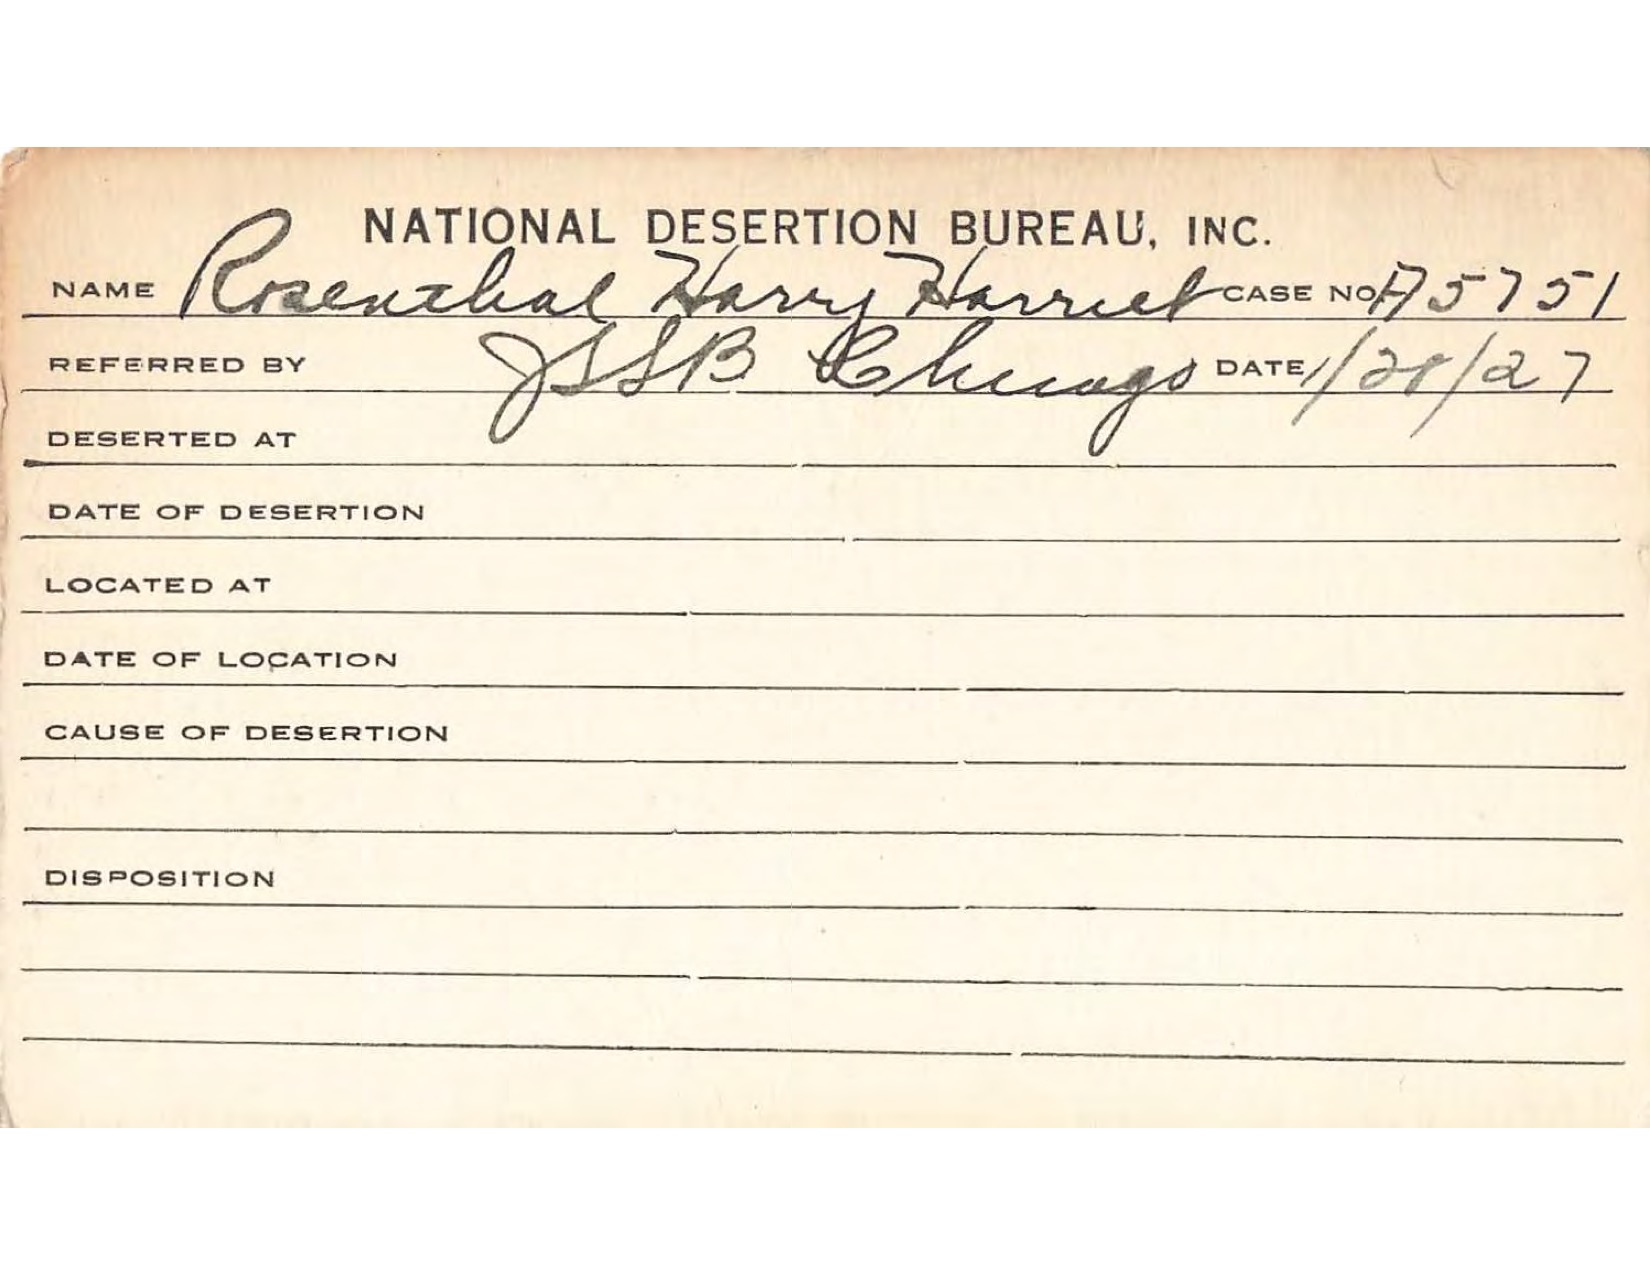 NATIONAL DESERTION BUREAU, INC.
NAME Rosenthal Harry Harriet CASE NO. A5751
REFERRED BY JSSB Chicago DATE 1/28/27
DESERTED AT
DATE OF DESERTION
LOCATED AT
DATE OF LOCATION
CAUSE OF DESERTION
DISPOSITION